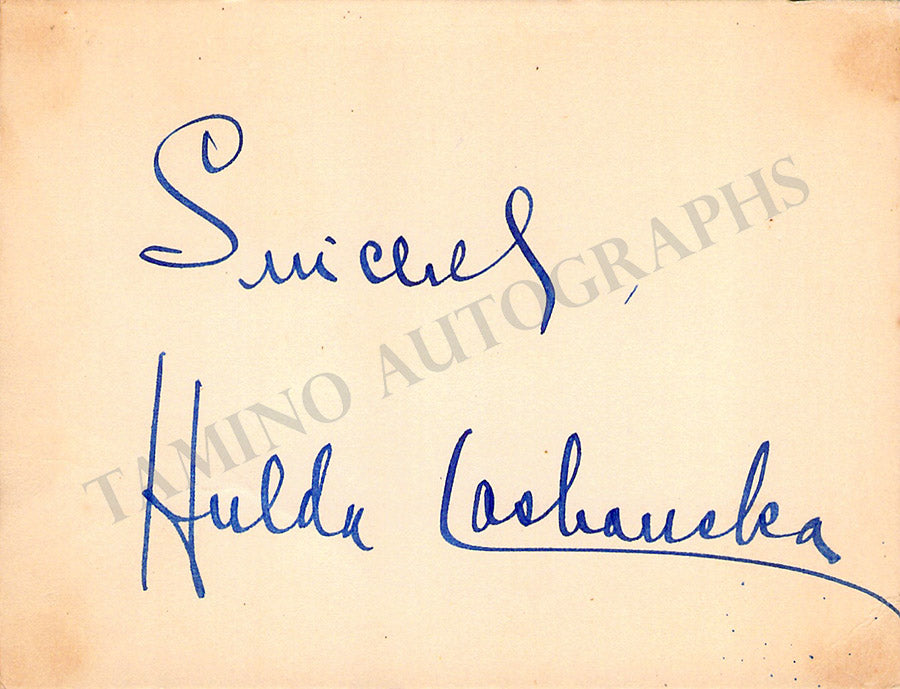 Sincerely
Hulda Lashanska
TAMINO AUTOGRAPHS